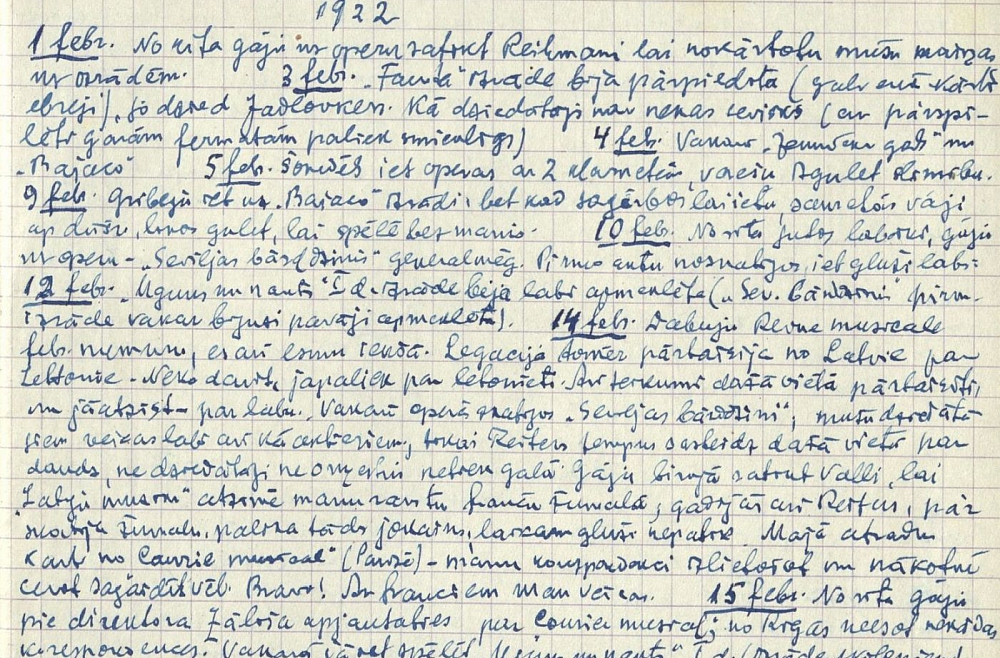 1922
1 febr. No rīta gāju uz operu satikt Reihmani lai nokārtotu mūsu maiņas
uz izrādēm. 3 febr. „Fausta" izrāde bija pārpildīta (galvenā kārtā
ebreji), jo dzied Jadlovkers. Kā dziedātājs nav nekas sevišķs (ar pārspī-
lēti garām fermatām paliek smieklīgs) 4 feb. Vakaru „ gads" un
„Bajaco" 5 feb. Šovakar iet operas ar 2 klarnetēm, varēšu izgulēt slimību.
9 feb. Gribēju iet uz „Bajaco" izrādi, bet kad sagērbos lai ietu, sametās vāji
ap dūšu, likos gulēt, lai spēlē bez manis. 10 feb. No rīta jutos labāki, gāju
uz operu – „Seviljas bārddziņis" ģenerālmēģ. Pirmo aktu noskatījos, iet gluži labi.
12 feb. „Uguns un nakts" I d. izrāde bija labi apmeklēta („Sev. bārddziņis" pirm-
izrāde vakar bijusi pavāji apmeklēta). 14 feb. Dabūju Revue musicale
feb. numuru, es arī esmu iekšā. Legācija tomēr pārtaisīja no Latvie par
Lettonie – Neko darīt, jāpaliek par letonieti. Arī teikumi dažā vietā pārtaisīti,
un jāatzīst – par labu. Vakarā operā skatījos „Seviljas bārddzini", mūsu dziedātā-
jiem veicas labi arī kā aktieriem, tikai Reiters tempus sasteidz dažā vietā par
daudz, ne dziedātāji ne orķestris netiek galā. Gāju birojā satikt Valli, lai
„Latvju mūzikā" atzīmē manu rakstu franču žurnālā, gadījās arī Reiters, pār-
skatīja žurnālu, palika tāds jokains, laikam gluži nepatīk. Mājā atradu
karti no Courrier musical (Parīzē) – manu korespondenci izlietošot un nākotnē
cerot sagaidīt vēl. Bravo! Ar frančiem man veicas. 15 febr. No rīta gāju
pie direktora Zālīša apjautāties par Courrier musical; no Rīgas neesot nekādas
korespondences. Vakarā „Uguns un nakts" I d.